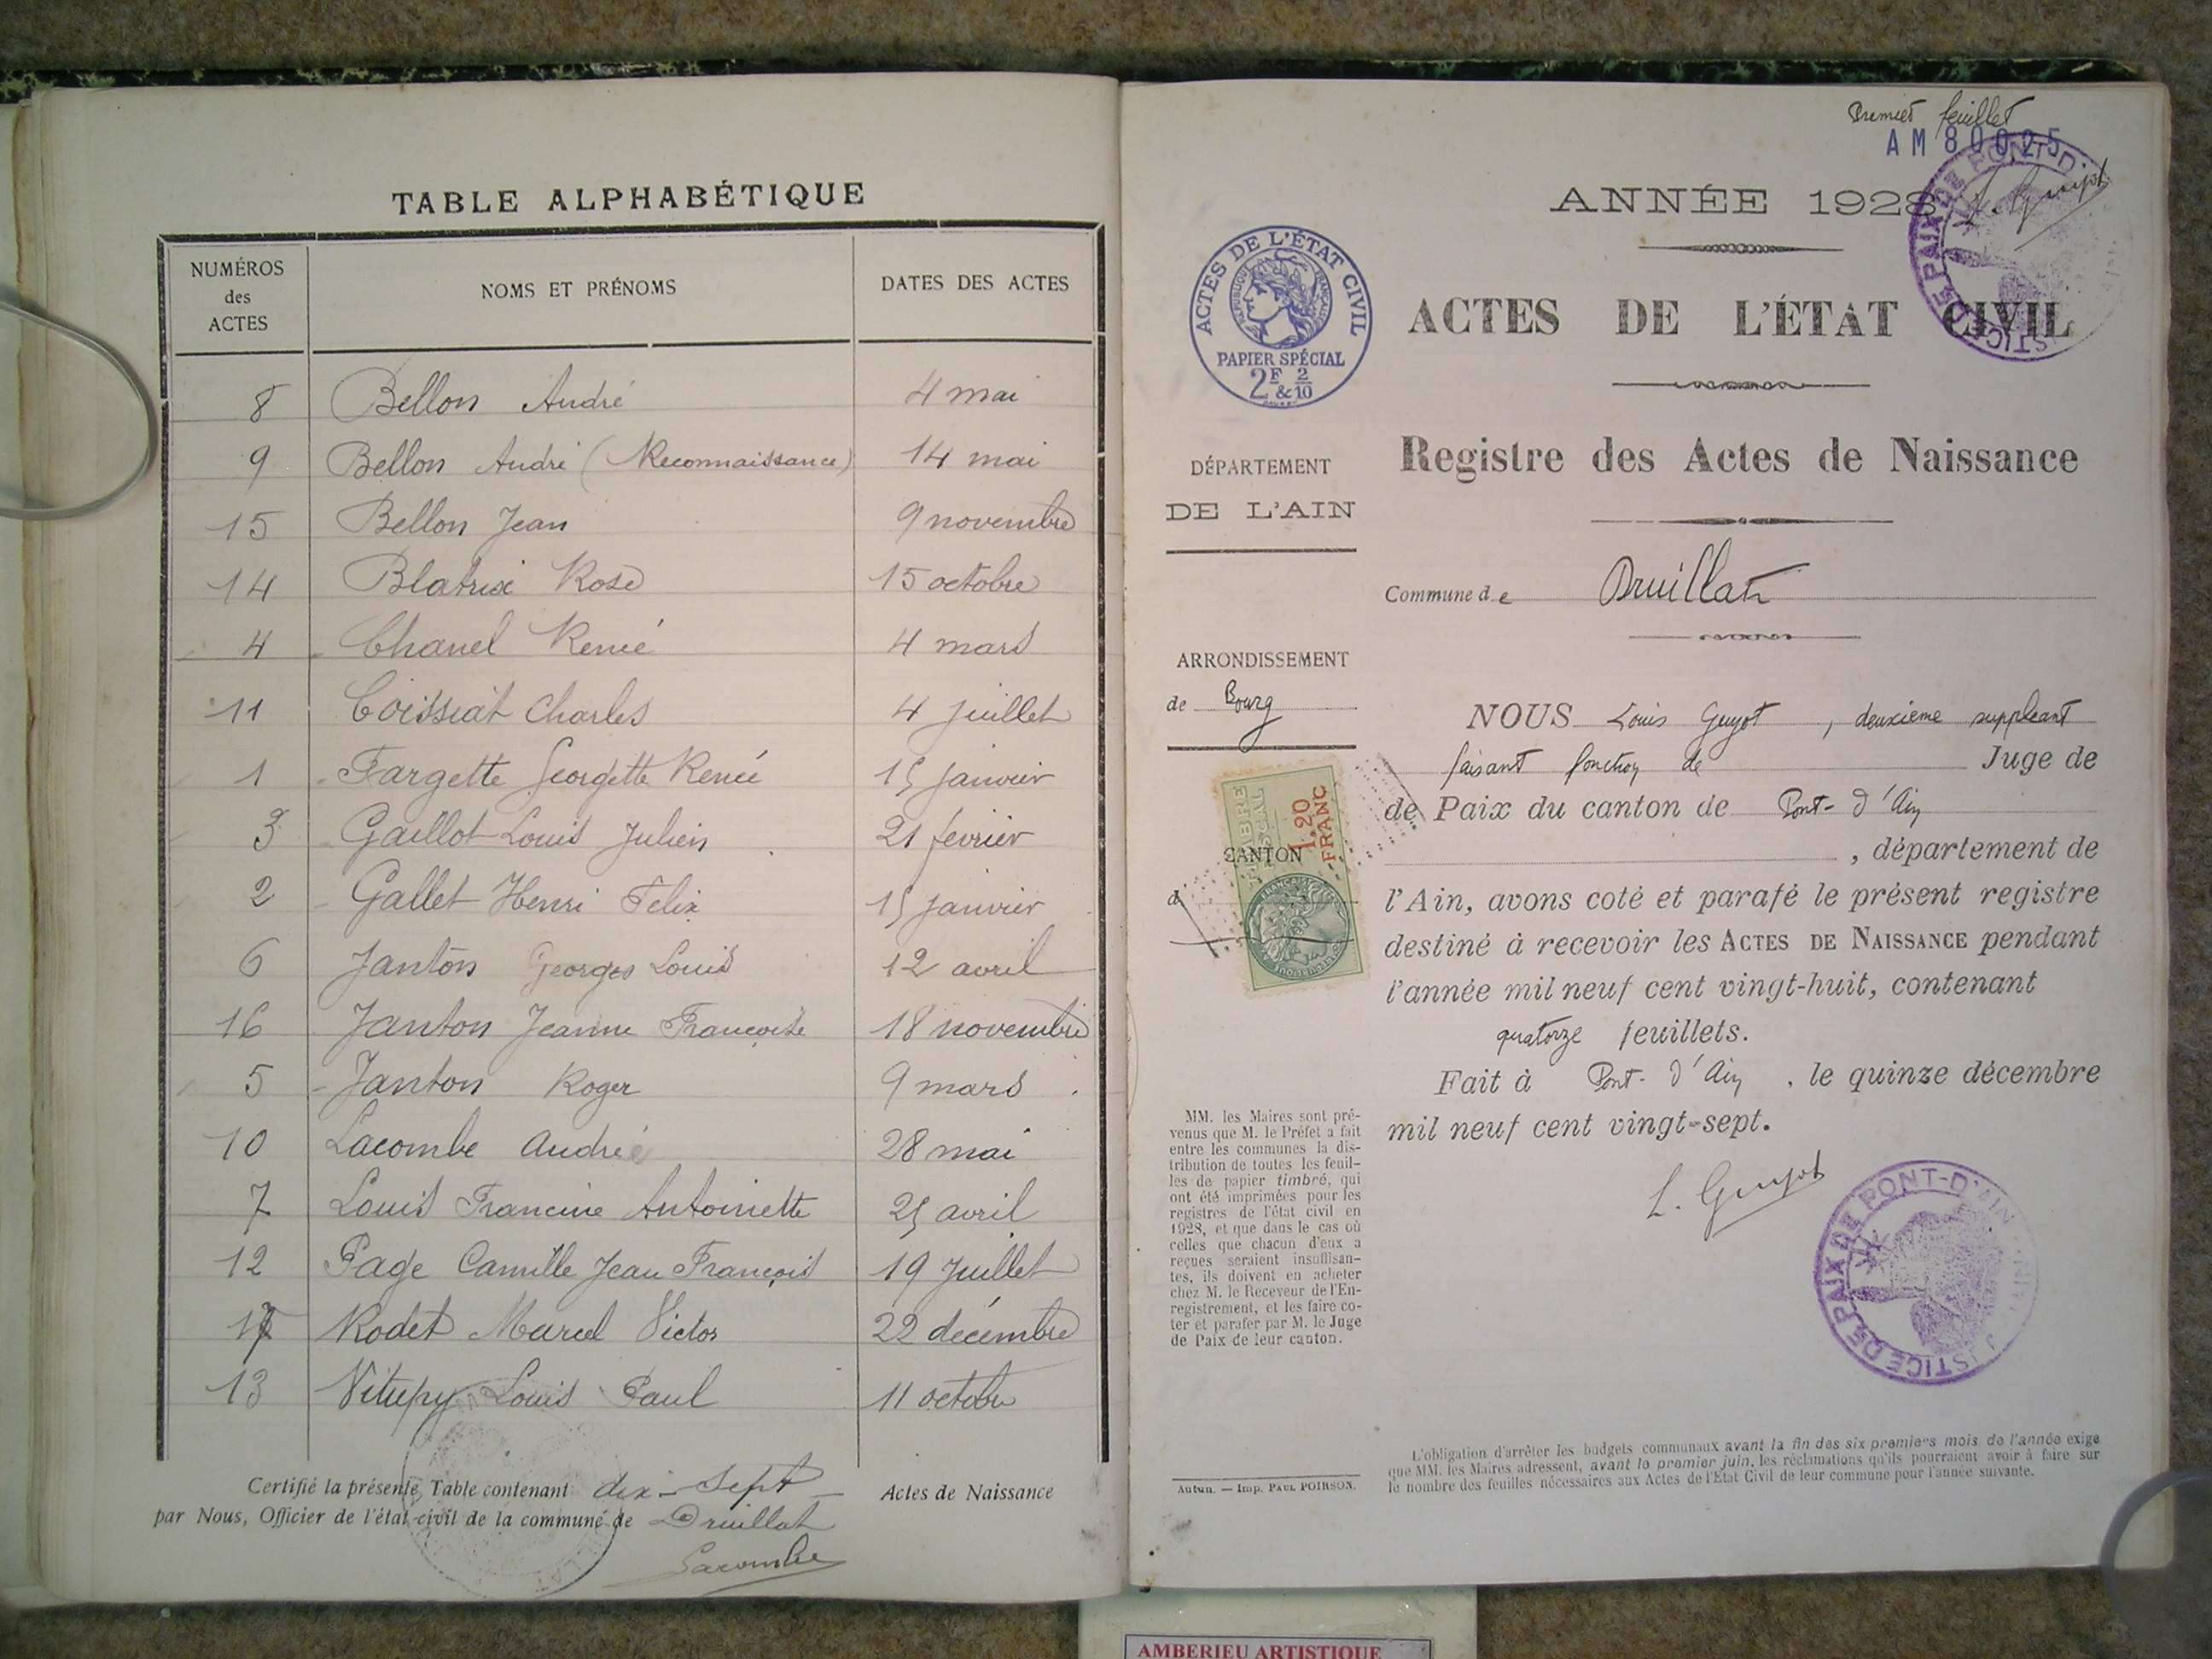 TABLE ALPHABÉTIQUE
NUMÉROS des ACTES NOMS ET PRÉNOMS DATES DES ACTES
8 Bellon André 4 mai
9 Bellon André (Reconnaissance) 14 mai
15 Bellon Jean 9 novembre
14 Blatrix Rose 15 octobre
4 Chanel René 4 mars
11 Coissiat Charles 4 juillet
1 Fargette Georgette Renée 15 janvier
3 Gaillot Louis Julien 21 février
2 Gallet Henri Félix 15 janvier
6 Janton Georges Louis 12 avril
16 Janton Jeanne Françoise 18 novembre
5 Janton Roger 9 mars
10 Lacombe André 28 mai
7 Louis Francine Antoinette 25 avril
12 Page Camille Jean François 19 Juillet
17 Rodet Marcel Victor 22 décembre
13 Vitupy Louis Paul 11 octobre
Certifié la présente Table contenant dix-sept Actes de Naissance
par Nous, Officier de l'état-civil de la commune de Druillat
Lacombe
Premier feuillet
AM 80025
L. Guyot
ANNÉE 1928
ACTES DE L'ÉTAT CIVIL
ACTES DE L'ÉTAT CIVIL
RÉPUBLIQUE FRANÇAISE
PAPIER SPÉCIAL
2F & 2/10
JUSTICE DE PAIX DE PONT-D'AIN
Registre des Actes de Naissance
DÉPARTEMENT
DE L'AIN
Commune de Druillat
ARRONDISSEMENT
de Bourg
NOUS Louis Guyot, deuxième suppléant
faisant fonction de Juge de
de Paix du canton de Pont-d'Ain
, département de
l'Ain, avons coté et parafé le présent registre
destiné à recevoir les ACTES DE NAISSANCE pendant
l'année mil neuf cent vingt-huit, contenant
quatorze feuillets.
Fait à Pont-d'Ain, le quinze décembre
mil neuf cent vingt-sept.
L. Guyot
JUSTICE DE PAIX DE PONT-D'AIN
TIMBRE FISCAL
1.20 FRANC
CANTON
d
MM. les Maires sont pré-
venus que M. le Préfet a fait
entre les communes la dis-
tribution de toutes les feuil-
les de papier timbré, qui
ont été imprimées pour les
registres de l'état civil en
1928, et que dans le cas où
celles que chacun d'eux a
reçues seraient insuffisan-
tes, ils doivent en acheter
chez M. le Receveur de l'En-
registrement, et les faire co-
ter et parafer par M. le Juge
de Paix de leur canton.
Autun. — Imp. PAUL POIRSON.
L'obligation d'arrêter les budgets communaux avant la fin des six premiers mois de l'année exige
que MM. les Maires adressent, avant le premier juin, les réclamations qu'ils pourraient avoir à faire sur
le nombre des feuilles nécessaires aux Actes de l'État Civil de leur commune pour l'année suivante.
AMBERIEU ARTISTIQUE